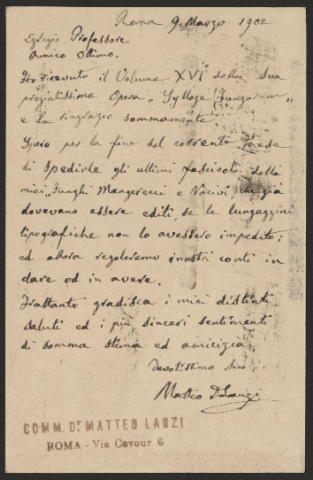 Roma 9 Marzo 1902
Egregio Professore
Amico Ottimo.
Ho ricevuto il Volume XVI della Sua
pregiatissima Opera „Sylloge Fungorum„
e la ringrazio sommamente.
Spero per la fine del corrente mese
di spedirle gli ultimi fascicoli della
miei „Funghi Mangerecci e Nocivi, che già
dovevano essere editi, se le lungaggini
tipografiche non lo avessero impedito;
ed allora regoleremo i nostri conti in
dare od in avere.
Frattanto gradisca i miei distinti
saluti ed i più sinceri sentimenti
di somma stima ed amicizia.
Devotissimo Suo
Matteo Lanzi
COMM. Dr. MATTEO LANZI
ROMA - Via Cavour 6